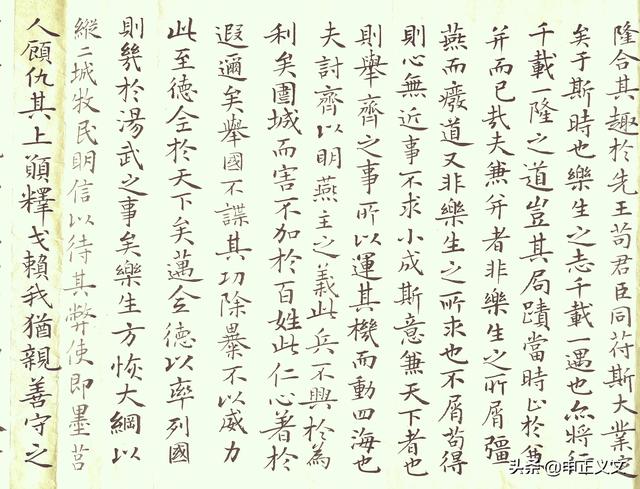 隆合其趣於先王苟君臣同符斯大業定
矣于斯時也樂生之志千載一遇也亦將行
千載一隆之道豈其局蹟當時止於兼
并而已哉夫兼并者非樂生之所屑彊
燕而癈道又非樂生之所求也不屑苟得
則心無近事不求小成斯意兼天下者也
則舉齊之事所以運其機而動四海也
夫討齊以明燕主之義此兵不興於為
利矣圍城而害不加於百姓此仁心著於
遐邇矣舉國不謀其功除暴不以威力
此至德全於天下矣邁全德以率列國
則幾於湯武之事矣樂生方恢大綱以
縱二城牧民明信以待其弊使即墨莒
人顧仇其上願釋戈賴我猶親善守之
头条@申正义文